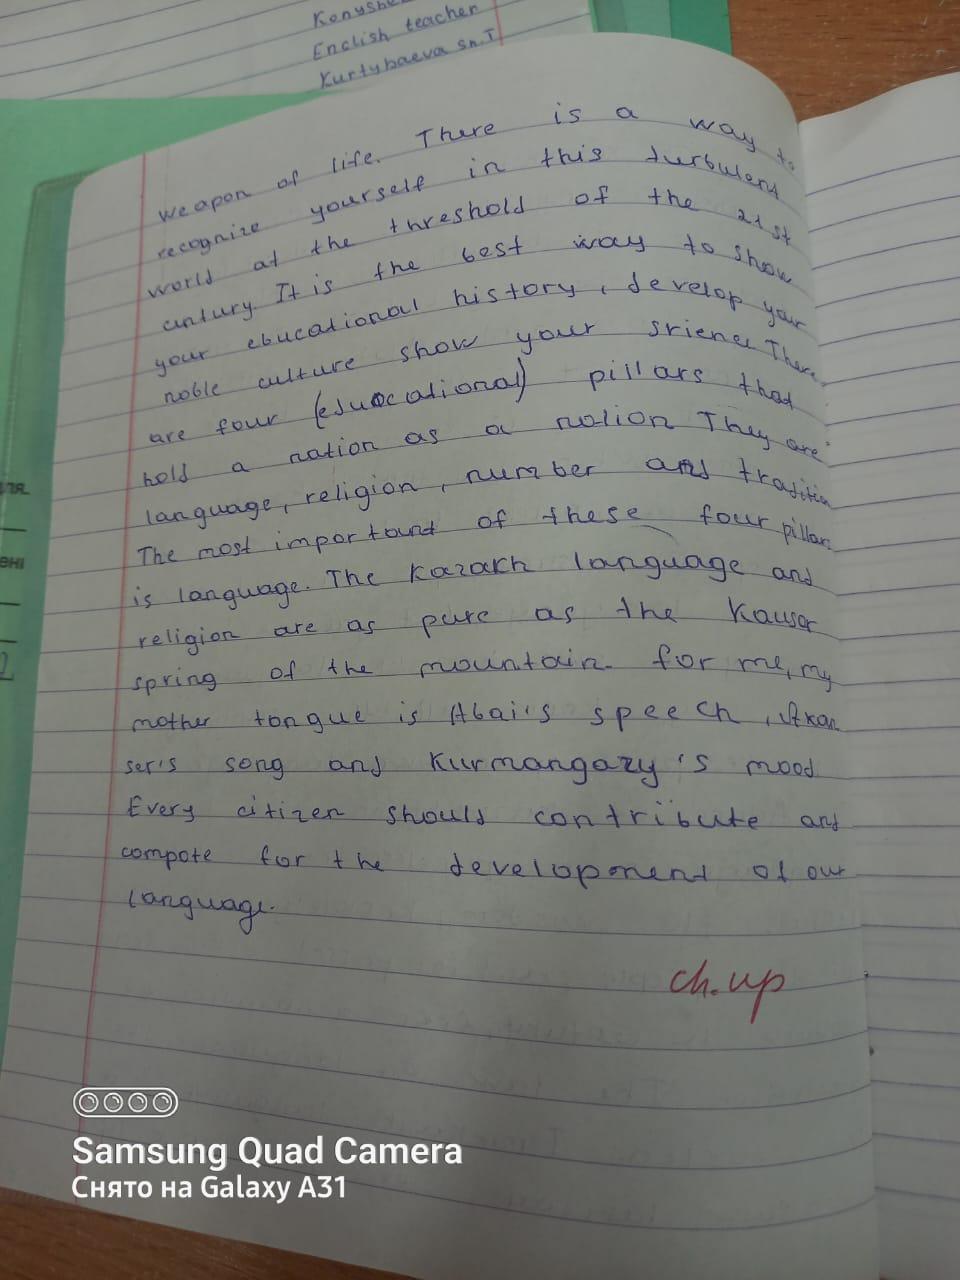 Konyshe
English teacher
Kurtybaeva Sn.T
weapon of life. There is a way to
recognize yourself in this turbulent
world at the threshold of the 21st
cintury. It is the best way to show
your ebucational history, develop your
noble culture show your srience There
are four (educational) pillars that
hold a nation as a nation They are
language, religion, number and tradition
The most important of these four pillars
is language. The Kazakh language and
religion are as pure as the Kausar
spring of the mountain. for me, my
mother tongue is Abai's speech, Akan
ser's song and Kurmangazy's mood
Every citizen should contribute and
compote for the development of our
language.
ch.up
Samsung Quad Camera
Снято на Galaxy A31